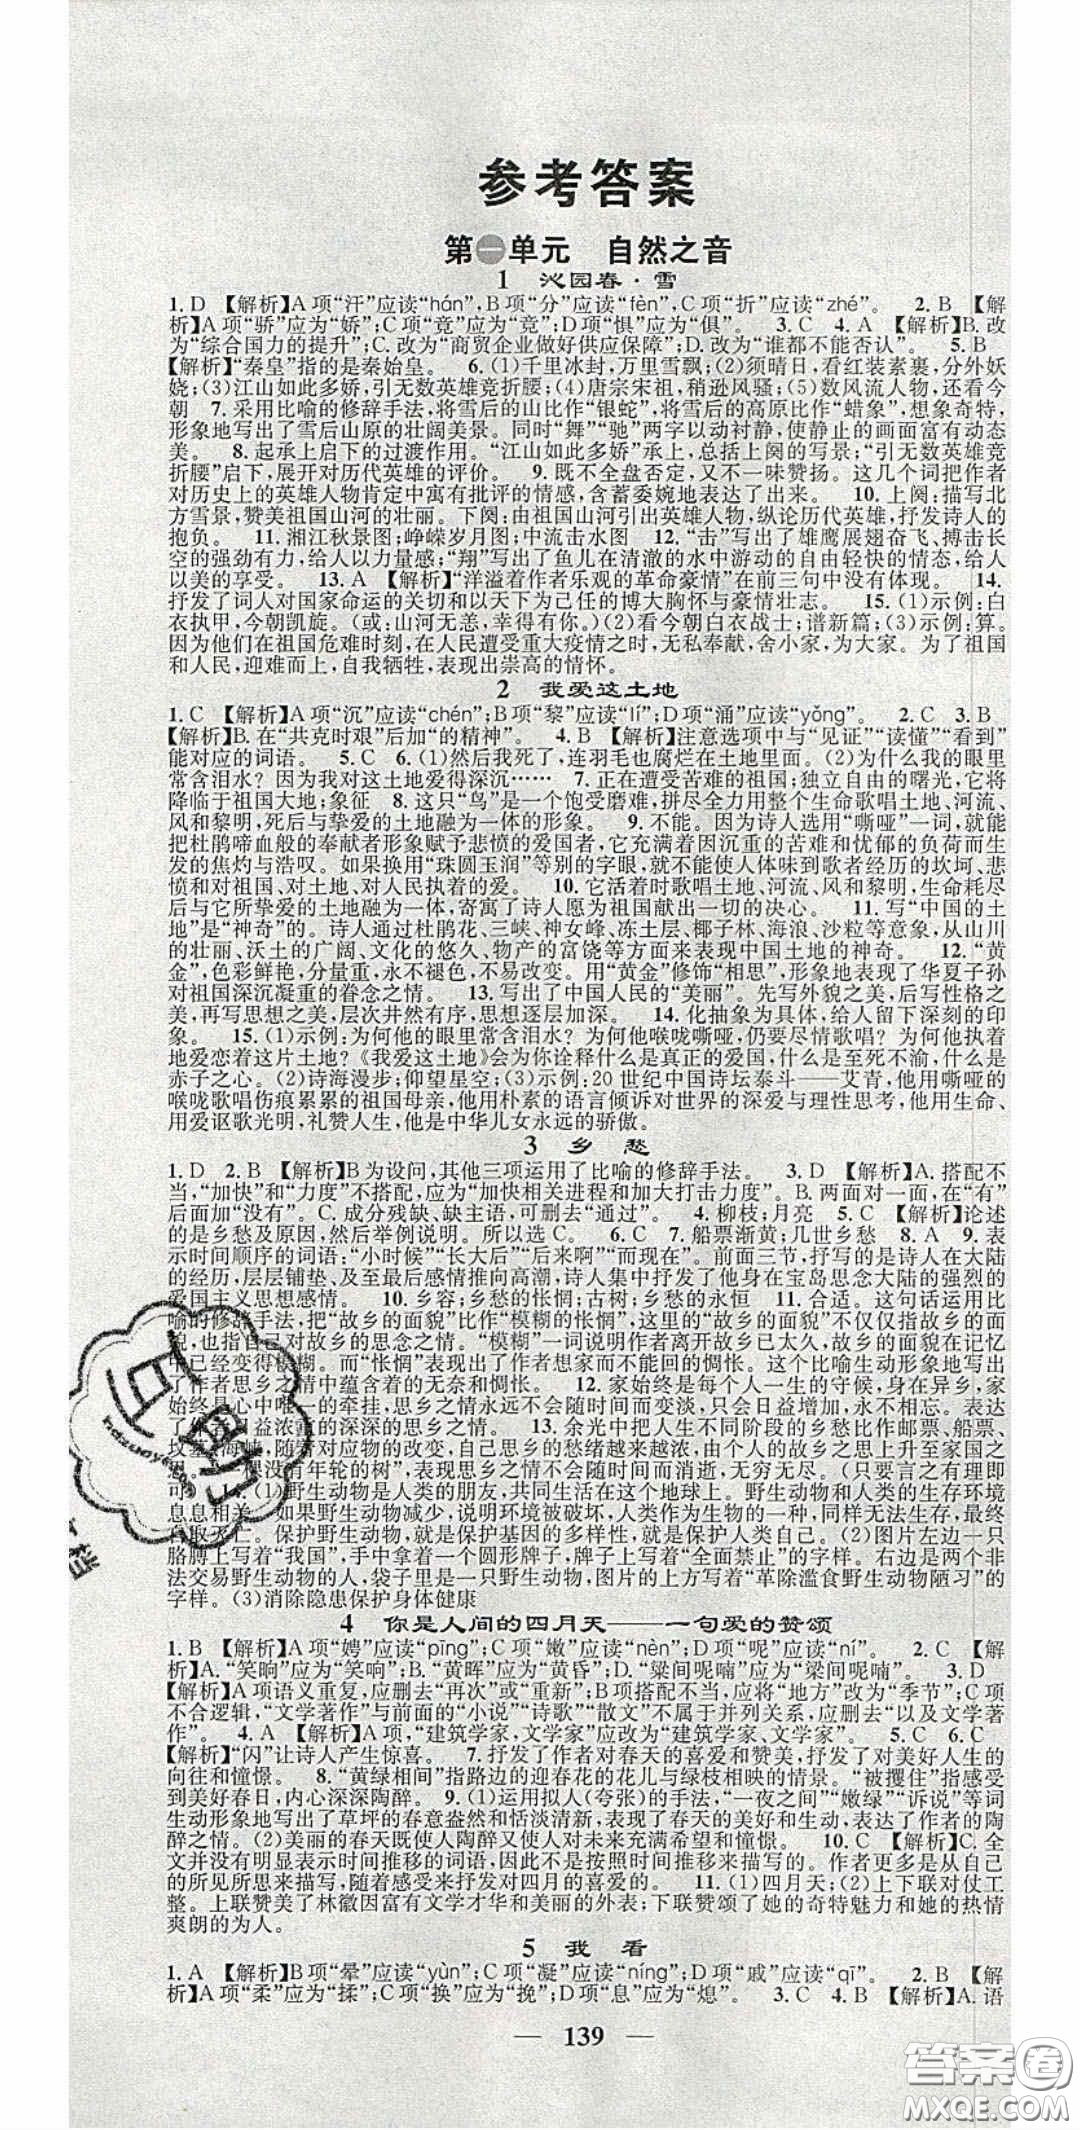 参考答案
第一单元　自然之音
1　沁园春·雪
1. D 【解析】A项“汗”应读“hán”,B项“分”应读“fèn”,C项“折”应读“zhé”。 2. B 【解
析】A项“骄”应为“娇”;C项“竟”应为“竞”;D项“惧”应为“俱”。 3. C 4. A 【解析】B. 改
为“综合国力的提升”;C. 改为“商贸企业做好供应保障”;D. 改为“谁都不能否认”。 5. B
【解析】“秦皇”指的是秦始皇。 6. (1)千里冰封,万里雪飘;(2)须晴日,看红装素裹,分外妖
娆;(3)江山如此多娇,引无数英雄竞折腰;(4)唐宗宋祖,稍逊风骚;(5)数风流人物,还看今
朝 7. 采用比喻的修辞手法,将雪后的山比作“银蛇”,将雪后的高原比作“蜡象”,想象奇特,
形象地写出了雪后山原的壮阔美景。同时“舞”“驰”两字以动衬静,使静止的画面富有动态
美。 8. 起承上启下的过渡作用。“江山如此多娇”承上,总括上阕的写景;“引无数英雄竞
折腰”启下,展开对历代英雄的评价。 9. 既不全盘否定,又不一味赞扬。这几个词把作者
对历史上的英雄人物肯定中寓有批评的情感,含蓄委婉地表达了出来。 10. 上阕:描写北
方雪景,赞美祖国山河的壮丽。下阕:由祖国山河引出英雄人物,纵论历代英雄,抒发诗人的
抱负。 11. 湘江秋景图;峥嵘岁月图;中流击水图 12. “击”写出了雄鹰展翅奋飞、搏击长
空的强劲有力,给人以力量感;“翔”写出了鱼儿在清澈的水中游动的自由轻快的情态,给人
以美的享受。 13. A 【解析】“洋溢着作者乐观的革命豪情”在前三句中没有体现。 14.
抒发了词人对国家命运的关切和以天下为己任的博大胸怀与豪情壮志。 15. (1)示例:白
衣执甲,今朝凯旋。(或:山河无恙,幸得有你。)(2)看今朝白衣战士;谱新篇;(3)示例:算。
因为他们在祖国危难时刻,在人民遭受重大疫情之时,无私奉献,舍小家,为大家。为了祖国
和人民,迎难而上,自我牺牲,表现出崇高的情怀。
2　我爱这土地
1. C 【解析】A项“沉”应读“chén”;B项“黎”应读“lí”;D项“涌”应读“yǒng”。 2. C 3. B
【解析】B. 在“共克时艰”后加“的精神”。 4. B 【解析】注意选项中与“见证”“读懂”“看到”
能对应的词语。 5. C 6. (1)然后我死了,连羽毛也腐烂在土地里面。(2)为什么我的眼里
常含泪水？因为我对这土地爱得深沉…… 7. 正在遭受苦难的祖国;独立自由的曙光,它将
降临于祖国大地;象征 8. 这只“鸟”是一个饱受磨难,拼尽全力用整个生命歌唱土地、河流、
风和黎明,死后与挚爱的土地融为一体的形象。 9. 不能。因为诗人选用“嘶哑”一词,就能
把杜鹃啼血般的奉献者形象赋予悲愤的爱国者,它充满着因沉重的苦难和忧郁的负荷而生
发的焦灼与浩叹。如果换用“珠圆玉润”等别的字眼,就不能使人体味到歌者经历的坎坷、悲
愤和对祖国、对土地、对人民执着的爱。 10. 它活着时歌唱土地、河流、风和黎明,生命耗尽
后与它所挚爱的土地融为一体,寄寓了诗人愿为祖国献出一切的决心。 11. 写“中国的土
地”是“神奇”的。诗人通过杜鹃花、三峡、神女峰、冻土层、椰子林、海浪、沙粒等意象,从山川
的壮丽、沃土的广阔、文化的悠久、物产的富饶等方面来表现中国土地的神奇。 12. “黄
金”,色彩鲜艳,分量重,永不褪色,不易改变。用“黄金”修饰“相思”,形象地表现了华夏子孙
对祖国深沉凝重的眷念之情。 13. 写出了中国人民的“美丽”。先写外貌之美,后写性格之
美,再写思想之美,层次井然有序,思想逐层加深。 14. 化抽象为具体,给人留下深刻的印
象。 15. (1)示例:为何他的眼里常含泪水？为何他喉咙嘶哑,仍要尽情歌唱？为何他执着
地爱恋着这片土地？《我爱这土地》会为你诠释什么是真正的爱国,什么是至死不渝,什么是
赤子之心。(2)诗海漫步;仰望星空;(3)示例:20世纪中国诗坛泰斗——艾青,他用嘶哑的
喉咙歌唱伤痕累累的祖国母亲,他用朴素的语言倾诉对世界的深爱与理性思考,他用生命、
用爱讴歌光明,礼赞人生,他是中华儿女永远的骄傲。
3　乡　愁
1. D 2. B 【解析】B为设问,其他三项运用了比喻的修辞手法。 3. D 【解析】A. 搭配不
当,“加快”和“力度”不搭配,应为“加快相关进程和加大打击力度”。B. 两面对一面,在“有”
后面加“没有”。C. 成分残缺、缺主语,可删去“通过”。 4. 柳枝;月亮 5. C 【解析】论述
的是乡愁及原因,然后举例说明。所以选C。 6. C 7. 船票渐黄;几世乡愁 8. A 9. 表
示时间顺序的词语:“小时候”“长大后”“后来啊”“而现在”。前面三节,抒写的是诗人在大陆
的经历,层层铺垫、及至最后感情推向高潮,诗人集中抒发了他身在宝岛思念大陆的强烈的
爱国主义思想感情。 10. 乡容;乡愁的怅惘;古树;乡愁的永恒 11. 合适。这句话运用比
喻的修辞手法,把“故乡的面貌”比作“模糊的怅惘”,这里的“故乡的面貌”不仅仅指故乡的面
貌,也指自己对故乡的思念之情。“模糊”一词说明作者离开故乡已太久,故乡的面貌在记忆
中已经变得模糊。而“怅惘”表现出了作者想家而不能回的惆怅。这个比喻生动形象地写出
了作者思乡之情中蕴含着的无奈和惆怅。 12. 家始终是每个人一生的守候,家
始终是心中最温暖的牵挂,思乡之情永远不会变淡,只会日益增加,永不相忘。表达
了作者日益浓香的深深的思乡之情。 13. 余光中把人生不同阶段的乡愁比作邮票、船票、
坟墓、海峡,随着对应物的改变,自己思乡的愁绪越来越浓,由个人的故乡之思上升至家国之
思。“一棵没有年轮的树”,表现思乡之情不会随时间而消逝,无穷无尽。(只要言之有理即
可) 14. (1)野生动物是人类的朋友,共同生活在这个地球上。野生动物和人类的生存环境
息息相关。如果野生动物减少,说明环境被破坏,人类作为生物的一种也无法生存,最终
自取灭亡。保护野生动物,就是保护基因的多样性,就是保护人类自己。(2)图片左边一只
胳膊上写着“我国”,手中拿着一个圆形牌子,牌子上写着“全面禁止”的字样。右边是两个非
法交易野生动物的人,袋子里是一只野生动物,图片的上方写着“革除滥食野生动物陋习”的
字样。(3)消除隐患保护身体健康
4　你是人间的四月天——一句爱的赞颂
1. B 【解析】A项“娉”应读“pīng”;C项“嫩”应读“nèn”;D项“呢”应读“ní”。 2. C 【解
析】A. “笑晌”应为“笑响”;B. “黄晖”应为“黄昏”;D. “粱间呢喃”应为“梁间呢喃”。 3. D
【解析】A项语义重复,应删去“再次”或“重新”;B项搭配不当,应将“地方”改为“季节”;C项
不合逻辑,“文学著作”与前面的“小说”“诗歌”“散文”不属于并列关系,应删去“以及文学著
作”。 4. A 【解析】A项,“建筑学家,文学家”应改为“建筑学家、文学家”。 5. C 6. C
【解析】“闪”让诗人产生惊喜。 7. 抒发了作者对春天的喜爱和赞美,抒发了对美好人生的
向往和憧憬。 8. “黄绿相间”指路边的迎春花的花儿与绿枝相映的情景。“被攫住”指感受
到美好春日,内心深深陶醉。 9. (1)运用拟人(夸张)的手法,“一夜之间”“嫩绿”“诉说”等词
生动形象地写出了草坪的春意盎然和恬淡清新,表现了春天的美好和生动,表达了作者的陶
醉之情。(2)美丽的春天既使人陶醉又使人对未来充满希望和憧憬。 10. C 【解析】C. 全
文并没有明显表示时间推移的词语,因此不是按照时间推移来描写的。作者更多是从自己
的所见所思来描写,随着感受来抒发对四月的喜爱的。 11. (1)四月天;(2)上下联对仗工
整。上联赞美了林徽因富有文学才华和美丽的外表;下联赞颂了她的奇特魅力和她的热情
爽朗的为人。
5　我　看
1. A 【解析】B项“晕”应读“yùn”;C项“凝”应读“níng”;D项“戚”应读“qī”。 2. B 【解
析】A项“柔”应为“揉”;C项“换”应为“挽”;D项“息”应为“熄”。 3. C 4. B 【解析】A. 语
— 139 —
答案圈
MXQE.COM